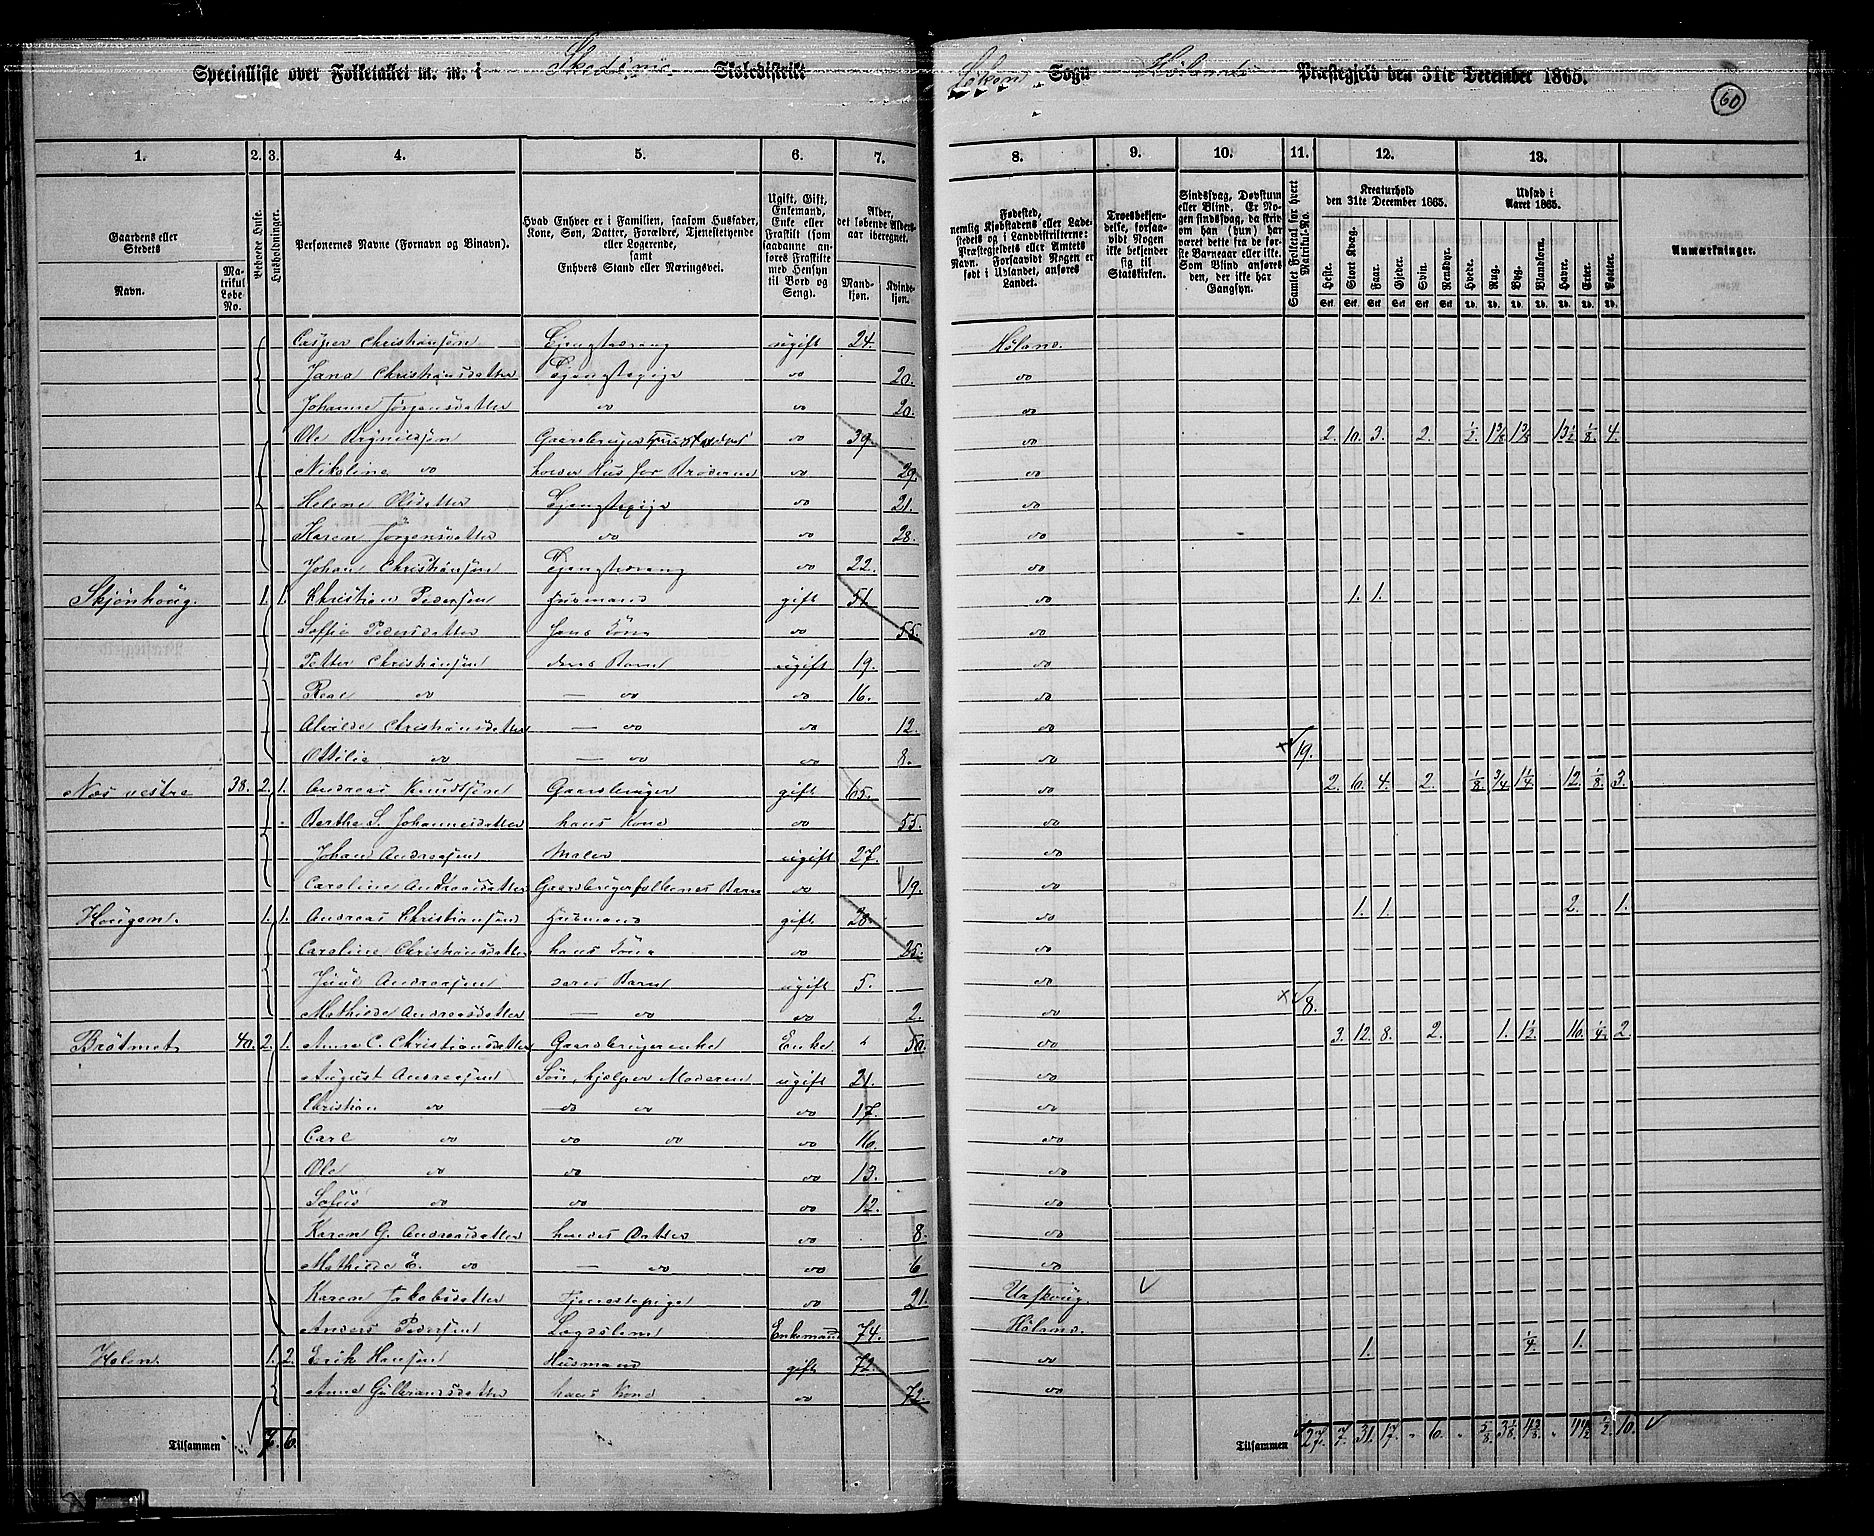 Specialliste over Folketallet m. m. i Skedsmo Skoledistrikt Løken Sogn Hølands Præstegjeld den 31te December 1865.
60
1. 2. 3. 4. 5. 6. 7. 8. 9. 10. 11. 12. 13.
Gaardens eller Stedets Navn. Matrikul Løbe-No.
Beboede Huse.
Husholdninger.
Personernes Navne (Fornavn og Binavn).
Hvad Enhver er i Familien, saasom Husfader, Kone, Søn, Datter, Forældre, Tjenestetyende eller Logerende, samt Enhvers Stand eller Næringsvei.
Ugift, Gift, Enkemand, Enke eller Fraskilt (som saadanne anføres Fraskilte med Hensyn til Bord og Seng).
Alder, det løbende Alders-aar iberegnet.
Mandkjøn. Kvindekjøn.
Fødested, nemlig Kjøbstadens eller Ladestedets og i Landdistrikterne: Præstegjeldets eller Amtets Navn. Forsaavidt Nogen er født i Udlandet, anføres Landet.
Troesbekjendelse, forsaavidt Nogen ikke bekjender sig til Statskirken.
Sindssvag, Døvstum eller Blind. Er Nogen sindssvag, da skrives om han (hun) har været dette fra de første Barneaar eller ikke. Som Blind anføres den, der ikke har Gangsyn.
Samlet Folketal for hvert Matrikul-No.
Kreaturhold den 31te December 1865.
Heste. Stort Kvæg. Faar. Gjeder. Svin. Rensdyr.
Udsæd i Aaret 1865.
Hvede. Rug. Byg. Blandkorn. Havre. Erter. Poteter.
Anmærkninger.
Casper Christiansen Tjenestedreng ugift 24. Høland.
Jana Christiansdatter Tjenestepige do 20. do
Johanne Jørgensdatter do do 20. do
Ole Brynildsen Gaardbruger do 39. do 2. 10. 3. 2. 4.
Nikoline do holder Hus for Brøderne do 29. do
Helene Olsdatter Tjenestepige do 21. do
Karen Jørgensdatter do do 28. do
Johan Christiansen Tjenestedreng do 22. do
Skjønhoug. 1. 1. Christian Pedersen Husmand gift 51. do 1. 1.
Soffie Pedersdatter hans Kone do 55. do
Petter Christiansen deres Barn ugift 19. do
do — do do 16. do
Alvilde Christiansdatter — do do 12. do
Ottilie do — do do 8. do 19.
Næs vestre 38. 2. 1. Andreas Knudsen Gaardbruger gift 65. do 2. 6. 4. 2. 1/8 3/4 1 1/4 12. 1/8 3.
Berthe S. Johannesdatter hans Kone do 55. do
Johan Andreasen Maler ugift 27. do
Caroline Andreasdatter Gaardbrugerfolkenes Barn do 19. do
Hougen. 1. 1. Andreas Christiansen Husmand gift 28. do 1. 1. 2. 1.
Caroline Christiansdatter hans Kone do 25. do
Juul Andreasen deres Barn ugift 5. do
Mathilde Andreasdatter — do do 2. do 8.
Bråtmet 40. 2. 1. Anne C. Christiansdatter Gaardbrugerenke Enke 50. do 3. 12. 8. 2. 1. 1 1/2 16. 1/4 2.
August Andreasen Søn, hjælper Moderen ugift 21. do
Christian do — do do do 17. do
Carl do do do do 16. do
Ole do do do 13. do
Sofus do do do 12. do
Karen G. Andreasdatter hendes Datter do 8. do
Mathilde E. do — do do 6 do
Karen Jakobsdatter Tjenestepige do 21. Urskoug.
Anders Pedersen Lægdslem Enkemand 74. Høland.
Holen 1. 2. Erik Hansen Husmand gift 72. do 1. 1/4 1.
Anne Gulbrandsdatter hans Kone do 72. do
Tilsammen 7. 6.
Tilsammen 27. 7. 31. 17. 6. 5/8 1/2 10.